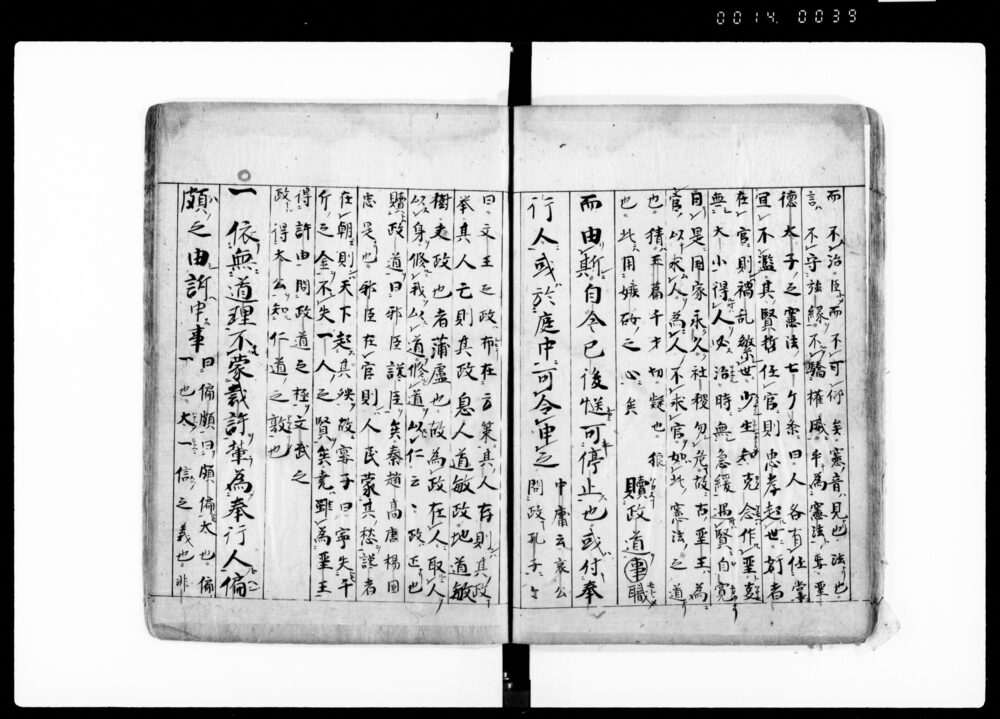 0014 0039
而不治臣而不可何矣憲音見也法也
言不守強縁不驕權威乎為憲法要聖
德太子之憲法七ケ条曰人各有任掌
宜不濫其賢哲任官則忠孝起世
者
在官則禍乱繁世少生知克念作聖
無大小得人必治時無急緩遇賢自寛
自是国家永久社稷勿危故古聖王為
官以求人為人不求官如此憲法之道
也猜
千才切疑也
也此用嫉
之心矣 贖政道事職
而由斯自今已後
可停止也或付奉
行人或於庭中可令申之
中庸云哀公
問政孔子
曰文王之政布在方策其人存則其政
挙其人亡則其政息人道敏政地道敏
樹夫政也者蒲盧也故為政在人取人
以身修我以道修道以仁云政正也
贖政道曰邪臣
臣矣秦趙高唐楊国
忠是也邪臣在官則人民蒙其愁
者
在朝則天下起其殃故
子曰寧失千
斤之金不失一人之賢矣堯雖為聖王
得許由問政道之
文武之
政得太公知仁道之敦也
一 依無道理不蒙裁許輩為奉行人偏
頗之由訴申事
曰偏頗曰頗偏太也偏
一也太一信之義也非